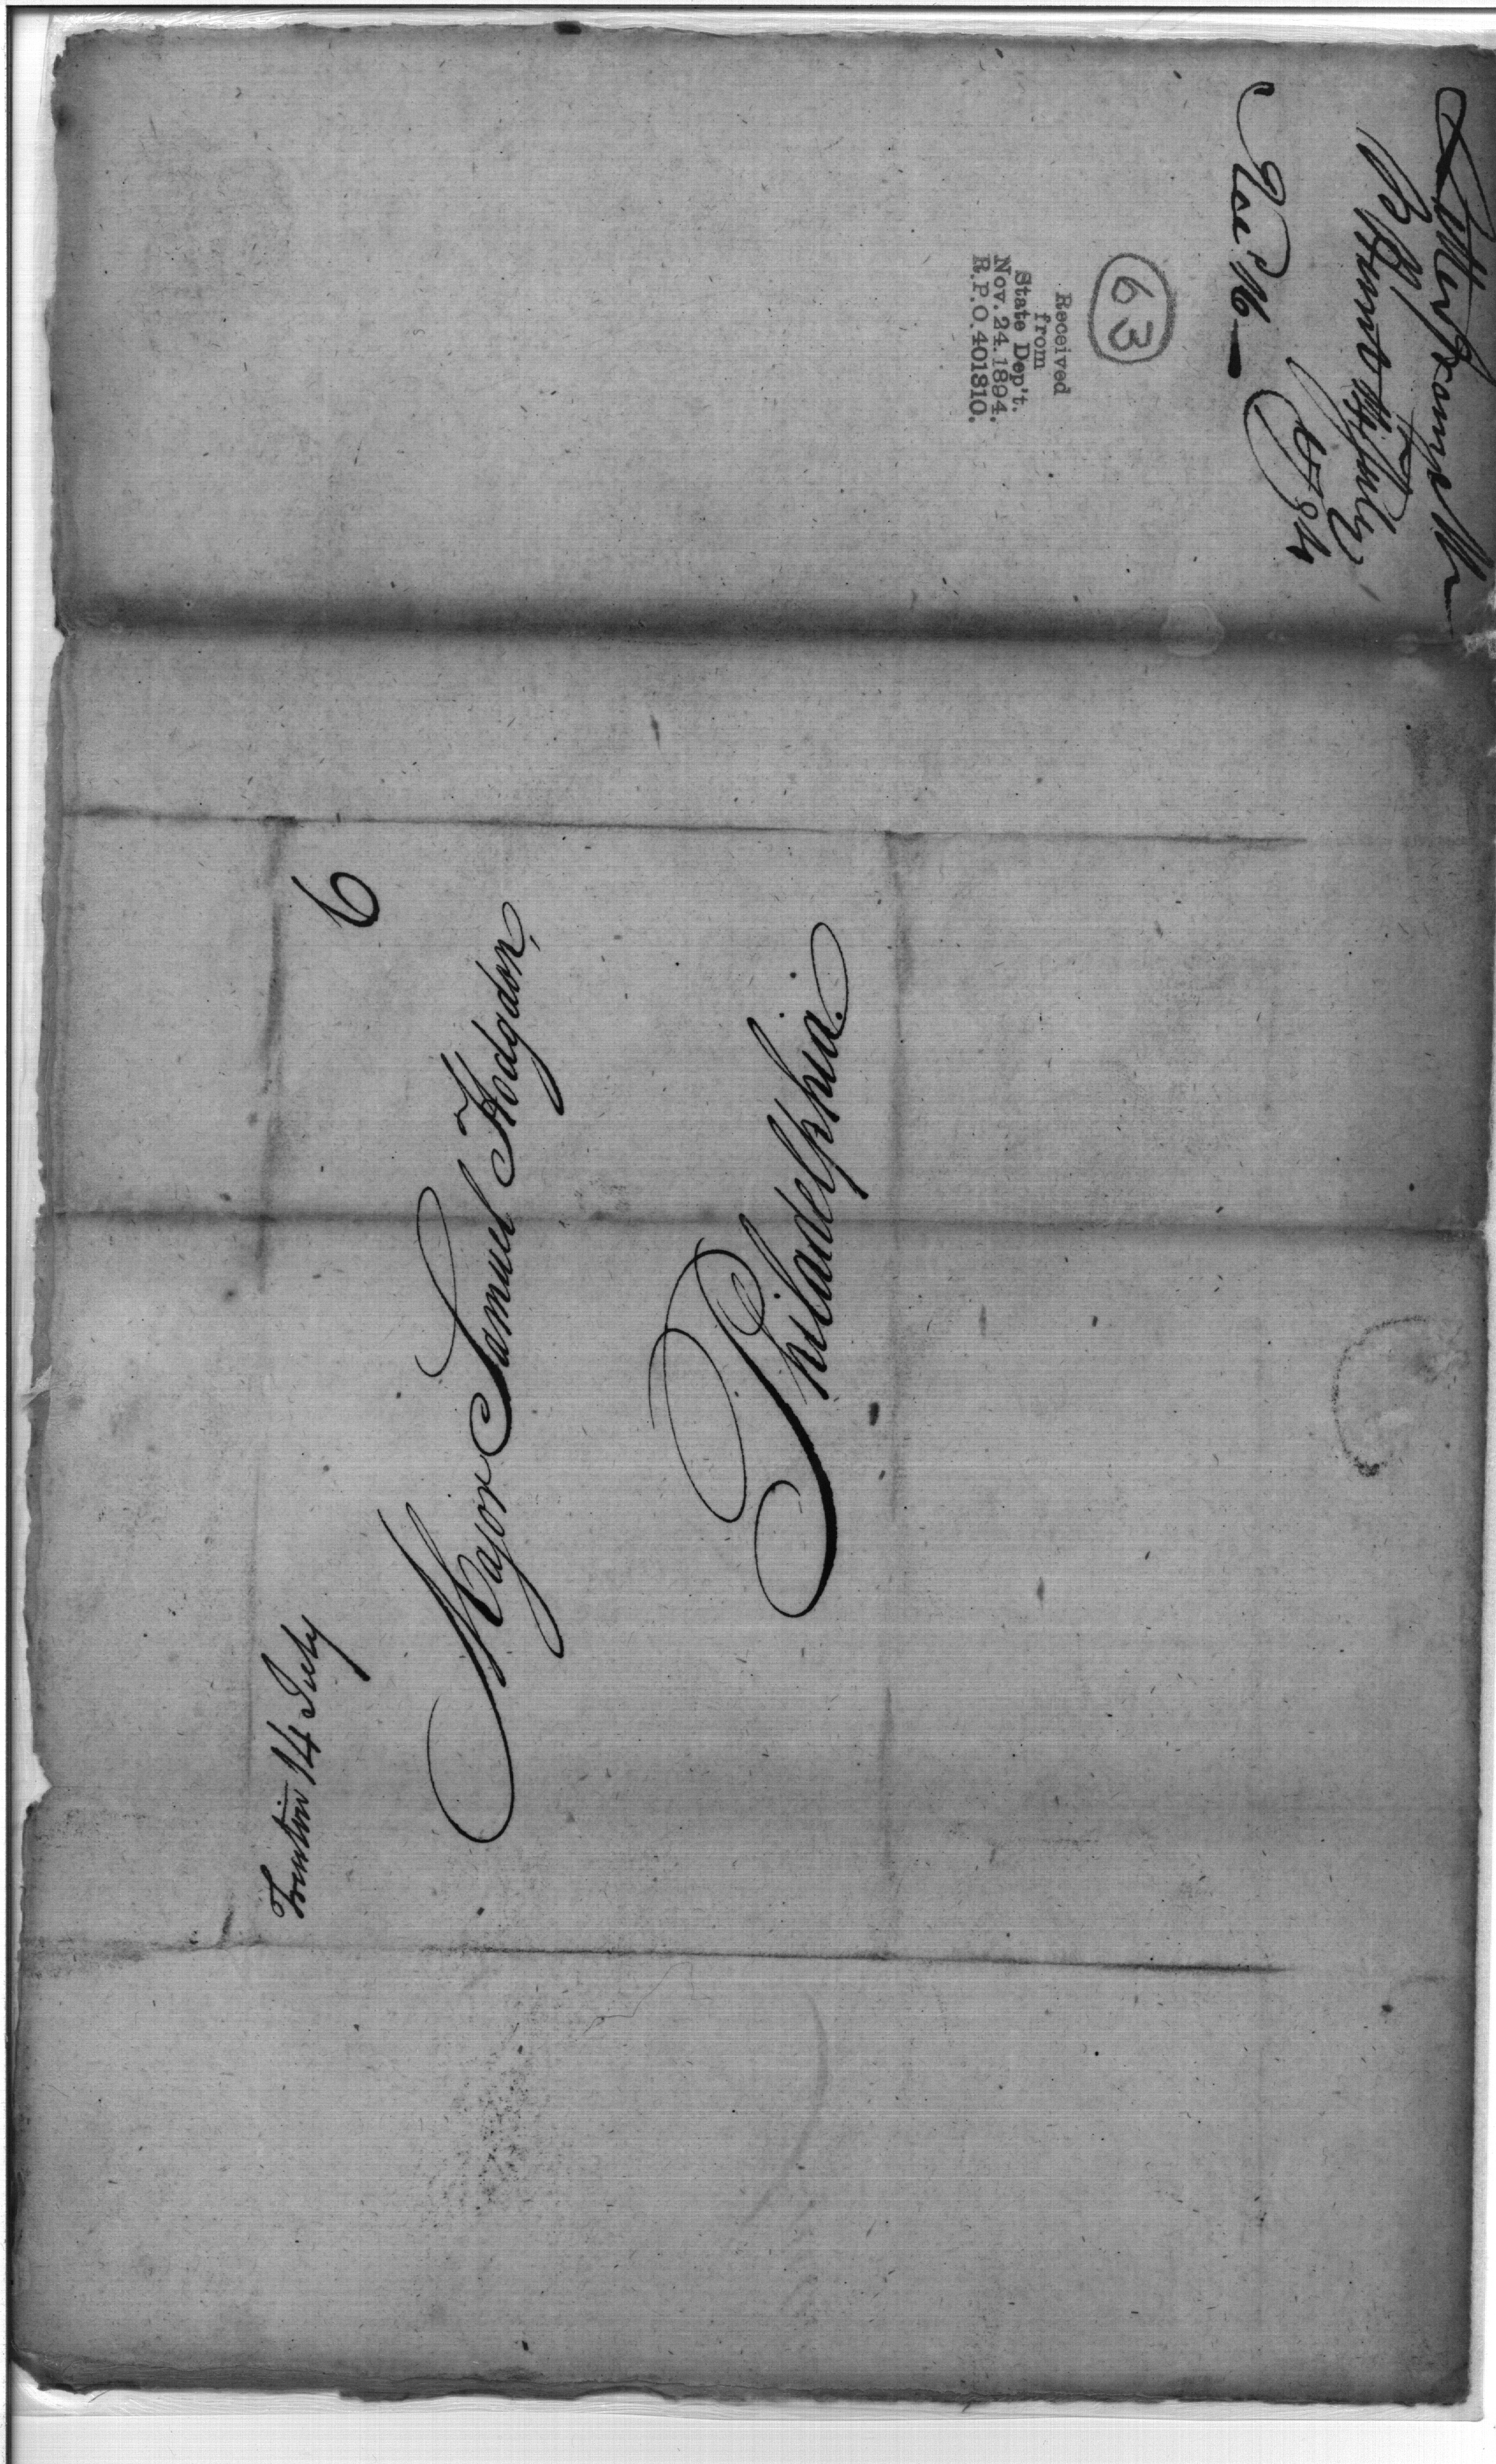 Trenton 14 July
6
Major Samuel Hodgdon,
Philadelphia.
Letter from Mr
July
Rec'd 16 —
63
Received
from
State Dep't.
Nov. 24. 1894.
R.P.O. 401310.